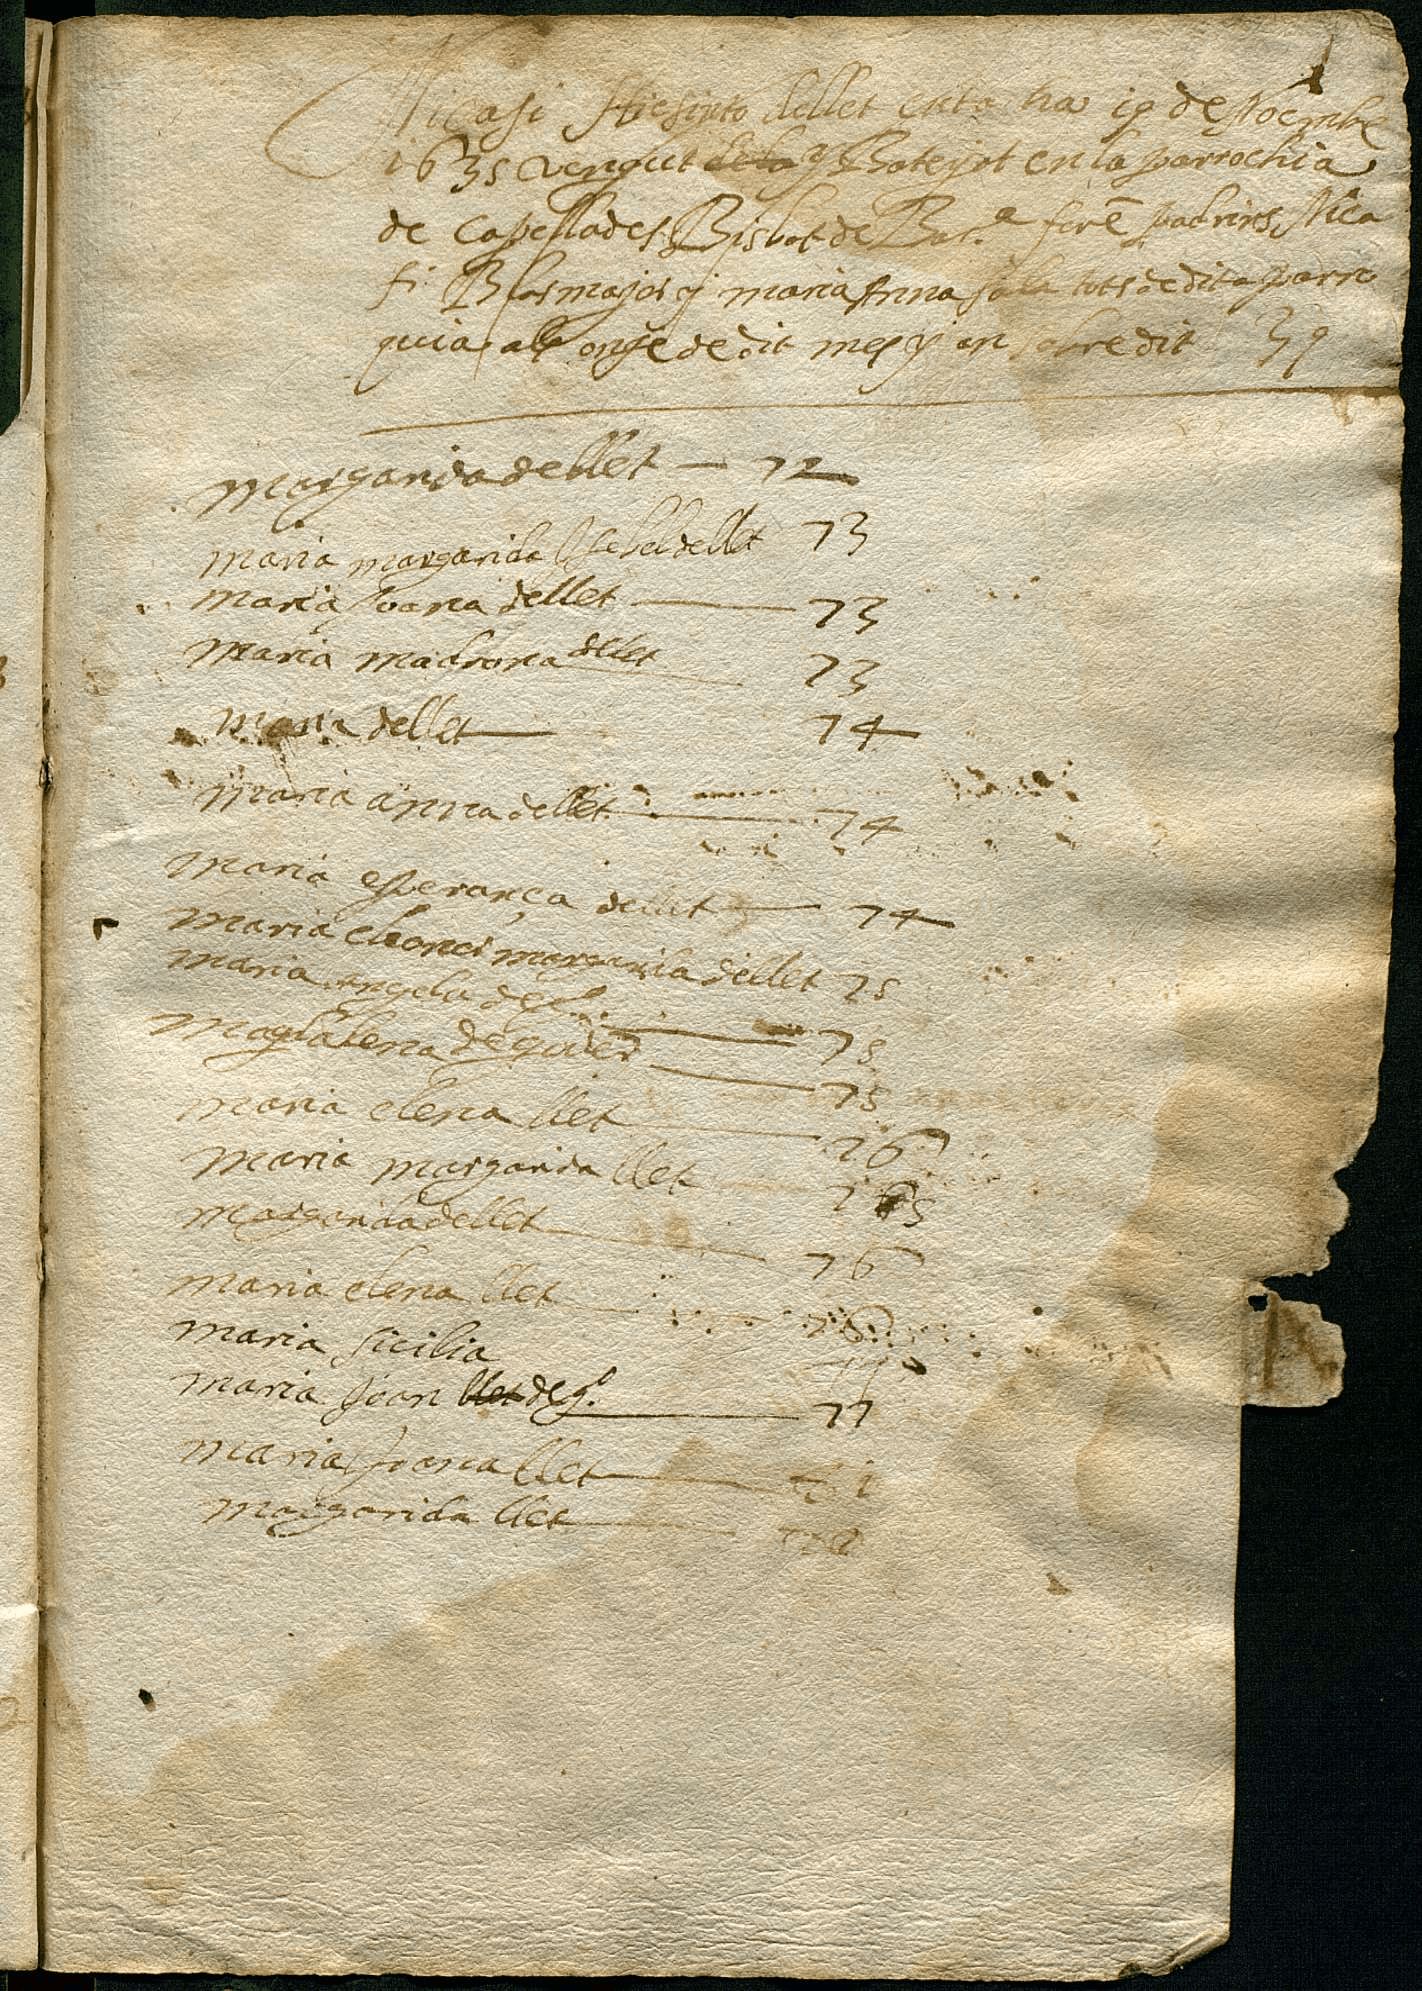 Nicasi Hiesinto dellet entra ha 19 de Noembre
1635 vengut de la y Batejat en la parrochia
de Capellades Bisbat de Bar.ª forē padrins Nica
si Blas major y maria Anna sala tots de dita parro
quia als onse de dit mes y an sobre dit 39
margarida dellet — 72
maria margarida Isebel dellet 73
maria Joana dellet — 73
maria madrona dellet 73
maria dellet — 74
maria anna dellet — 74
maria esperança dellet — 74
maria elionor margarida dellet 75
maria angela de gl. — 75
magdalena de quiei — 75
maria elena llet — 76
maria margarida llet 76
margarida dellet — 76
maria elena llet — 76
maria sicilia 77
maria Joan llet de gl. — 77
maria Joana llet —
margarida llet —